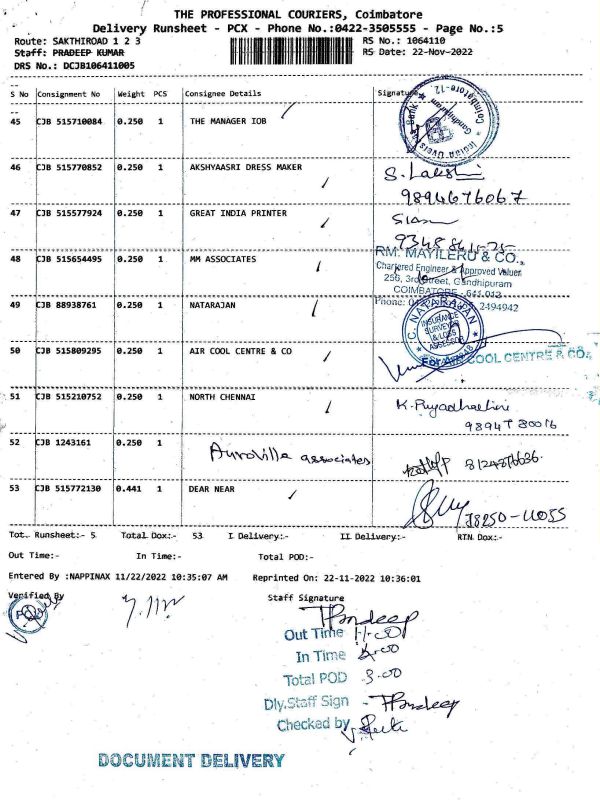 THE PROFESSIONAL COURIERS, Coimbatore
Delivery Runsheet - PCX - Phone No.:0422-3505555 - Page No.:5
Route: SAKTHIROAD 1 2 3
RS No.: 1064110
Staff: PRADEEP KUMAR
RS Date: 22-Nov-2022
DRS No.: DCJB106411005
S No Consignment No Weight PCS Consignee Details Signature
45 CJB 515710084 0.250 1 THE MANAGER IOB
46 CJB 515770852 0.250 1 AKSHYAASRI DRESS MAKER S. Lakshmi
9894676067
47 CJB 515577924 0.250 1 GREAT INDIA PRINTER
48 CJB 515654495 0.250 1 MM ASSOCIATES RM. MAYILERU & CO.,
Chartered Engineer & Approved Valuer
256, 3rd Street, Gandhipuram
COIMBATORE - 641 012
Phone: 2494942
49 CJB 88938761 0.250 1 NATARAJAN C. NATARAJAN
INSURANCE SURVEYOR & LOSS ASSESSOR
50 CJB 515809295 0.250 1 AIR COOL CENTRE & CO For AIR COOL CENTRE & CO.,
51 CJB 515210752 0.250 1 NORTH CHENNAI
52 CJB 1243161 0.250 1 Auroville associates
53 CJB 515772130 0.441 1 DEAR NEAR
Tot. Runsheet:- 5 Total Dox:- 53 I Delivery:- II Delivery:- RTN Dox:-
Out Time:- In Time:- Total POD:-
Entered By :NAPPINAX 11/22/2022 10:35:07 AM Reprinted On: 22-11-2022 10:36:01
Verified By Staff Signature
Out Time 11.00
In Time
Total POD 3.00
Dly.Staff Sign -
Checked by
DOCUMENT DELIVERY